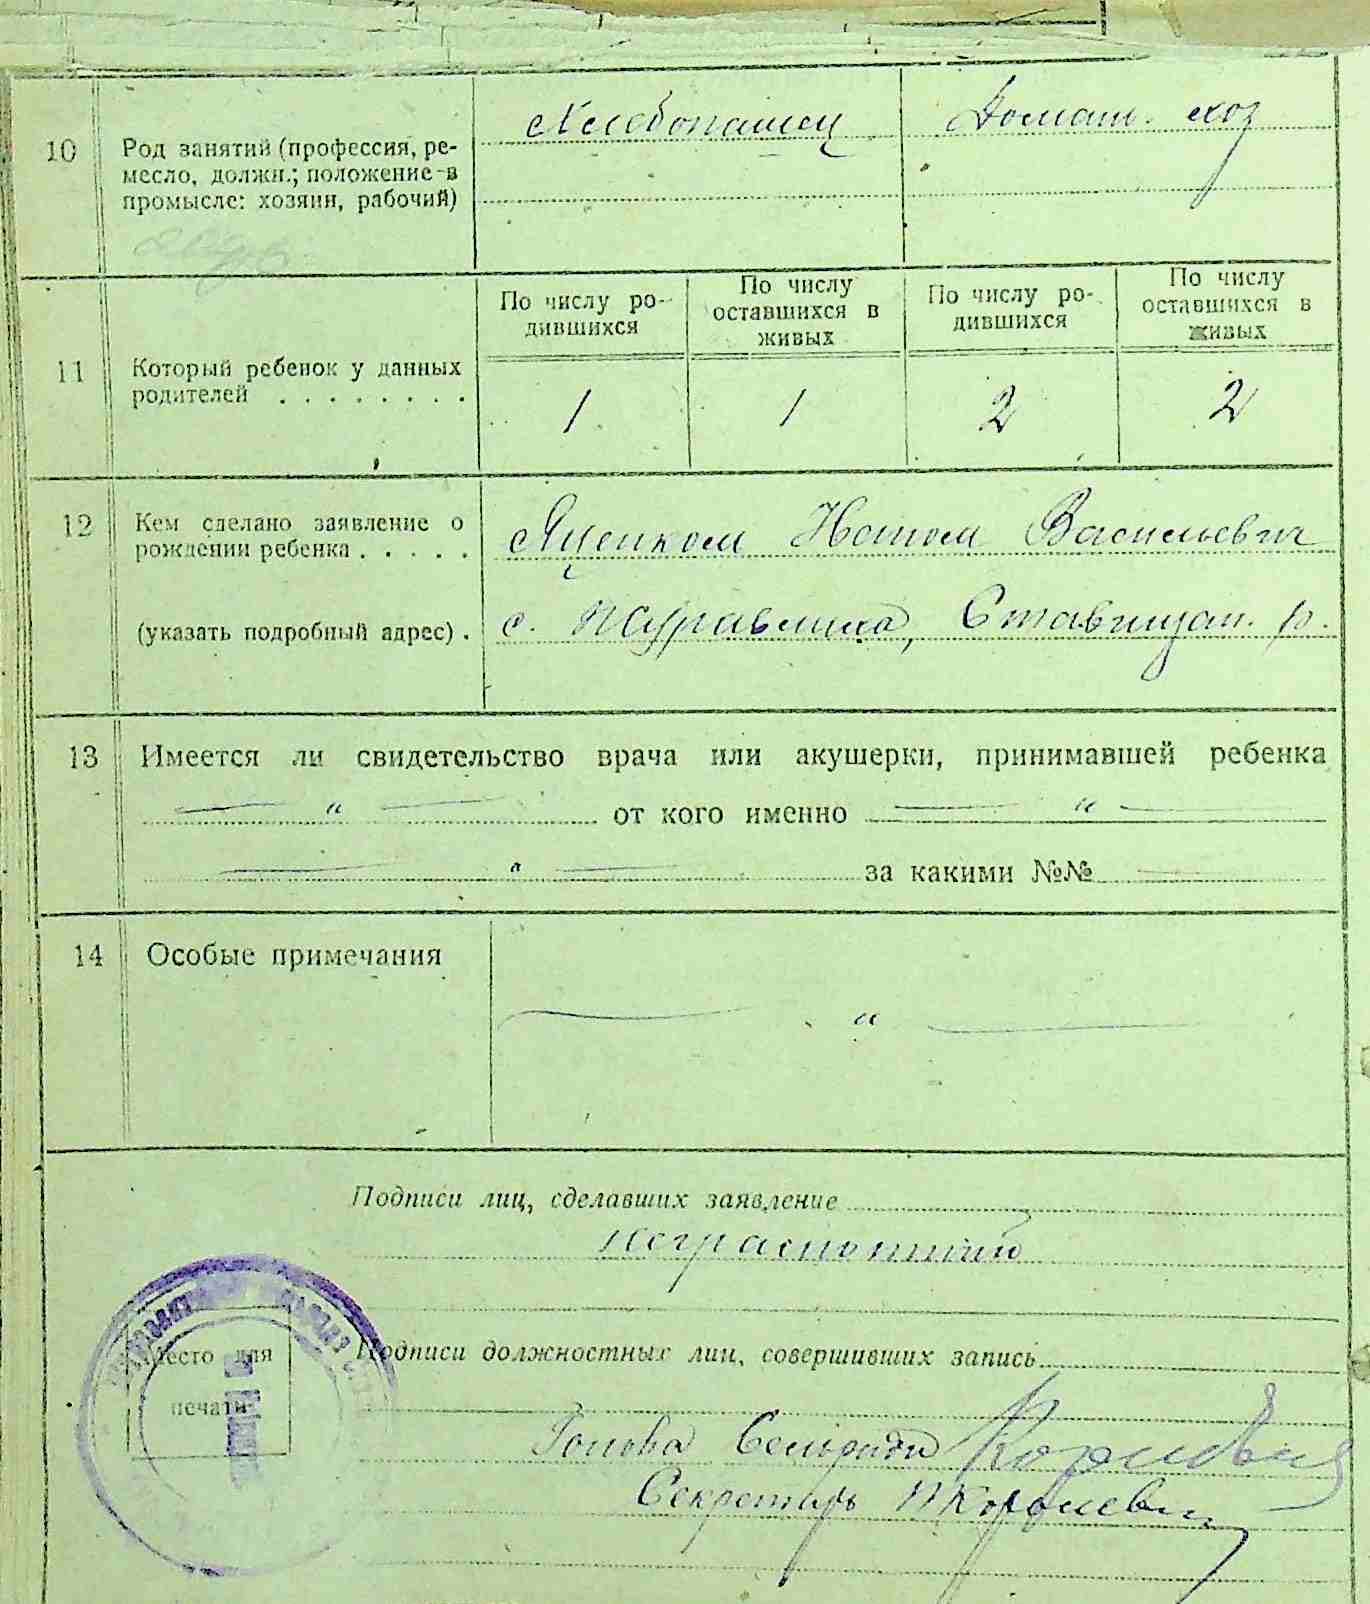 10
Род занятий (профессия, ре-
месло, должн.; положение в
промысле: хозяин, рабочий)
Хлебопашец
Домаш. хоз
11
Который ребенок у данных
родителей . . . . . . . .
По числу ро-
дившихся
По числу
оставшихся в
живых
По числу ро-
дившихся
По числу
оставшихся в
живых
1
1
2
2
12
Кем сделано заявление о
рождении ребенка . . . . .
(указать подробный адрес) .
Яценком Натом Васильевич
с. Журавлиха, Ставищан. р.
13
Имеется ли свидетельство врача или акушерки, принимавшей ребенка
— „ — от кого именно — „ —
— „ — за какими №№ —
14
Особые примечания
— „ —
Подписи лиц, сделавших заявление
неграмотний
Место для
печати
Подписи должностных лиц, совершивших запись
Голова Сельради
Секретарь